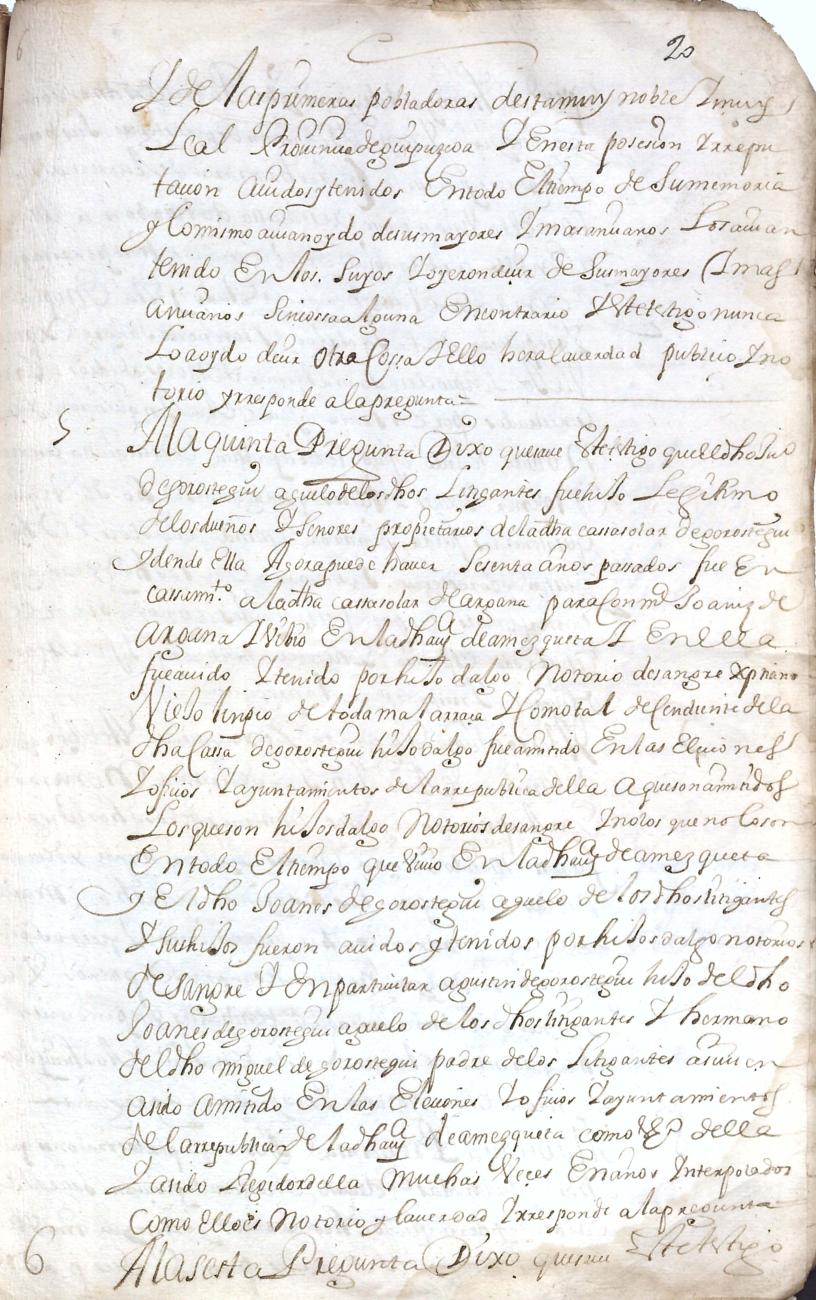 20
Y de las primeras pobladoras desta muy noble Y muy
Leal Provincia de guipuzcoa Y En esta posesion Y rrepu
tacion avidos y tenidos En todo El tiempo de Su memoria
y lo mismo avian oydo de sus mayores Y mas ancianos Los avian
tenido En los Suyos Y oyeron decir de Sus mayores Y mas
ancianos Sin cossa alguna En contrario Y este testigo nunca
Lo a oydo decir otra Cossa Y Ello hera la verdad publico Y no
torio y rresponde a la pregunta =
5 A la quinta Pregunta Dixo que save Este testigo que El dho
de gorostegui aguelo de los dhos Litigantes fue hijo Legitimo
de los dueños Y Señores propietarios de la dha cassa solar de gorostegui
y dende Ella Agora puede haver Sesenta años passados fue En
cassamto a la dha cassa solar de argana para Con md Joaniz de
argana Y Vibio En la dha de amezqueta Y En ella
fue avido Y tenido por hijo dalgo Notorio de sangre xptiano
Viejo linpio de toda mala rraça Y Como tal decendiente de la
dha Cassa de gorostegui hijo dalgo fue amitido En las Eleciones
Y oficios Y ayuntamientos de la rrepublica della a que son amitidos
Los que son hijos dalgo Notorios de sangre Y no los que no lo son
En todo El tiempo que Vivio En la dha de amezqueta
y El dho Joanes de gorostegui aguelo de los dhos litigantes
Y su hijos fueron avidos y tenidos por hijos dalgo notorios
de Sangre Y En particular agustin de gorostegui hijo del dho
Joanes de gorostegui aguelo de los dhos litigantes Y hermano
del dho miguel de gorostegui padre de los Litigantes
a sido amitido En las Eleciones Y oficios Y ayuntamientos
de la rrepublica de la dha de amezqueta como della
Y a sido Regidor della muchas Veçes En años Interpolados
Como Ello es Notorio y la verdad Y rresponde a la pregunta
6 A la sesta Pregunta Dixo que save Este testigo